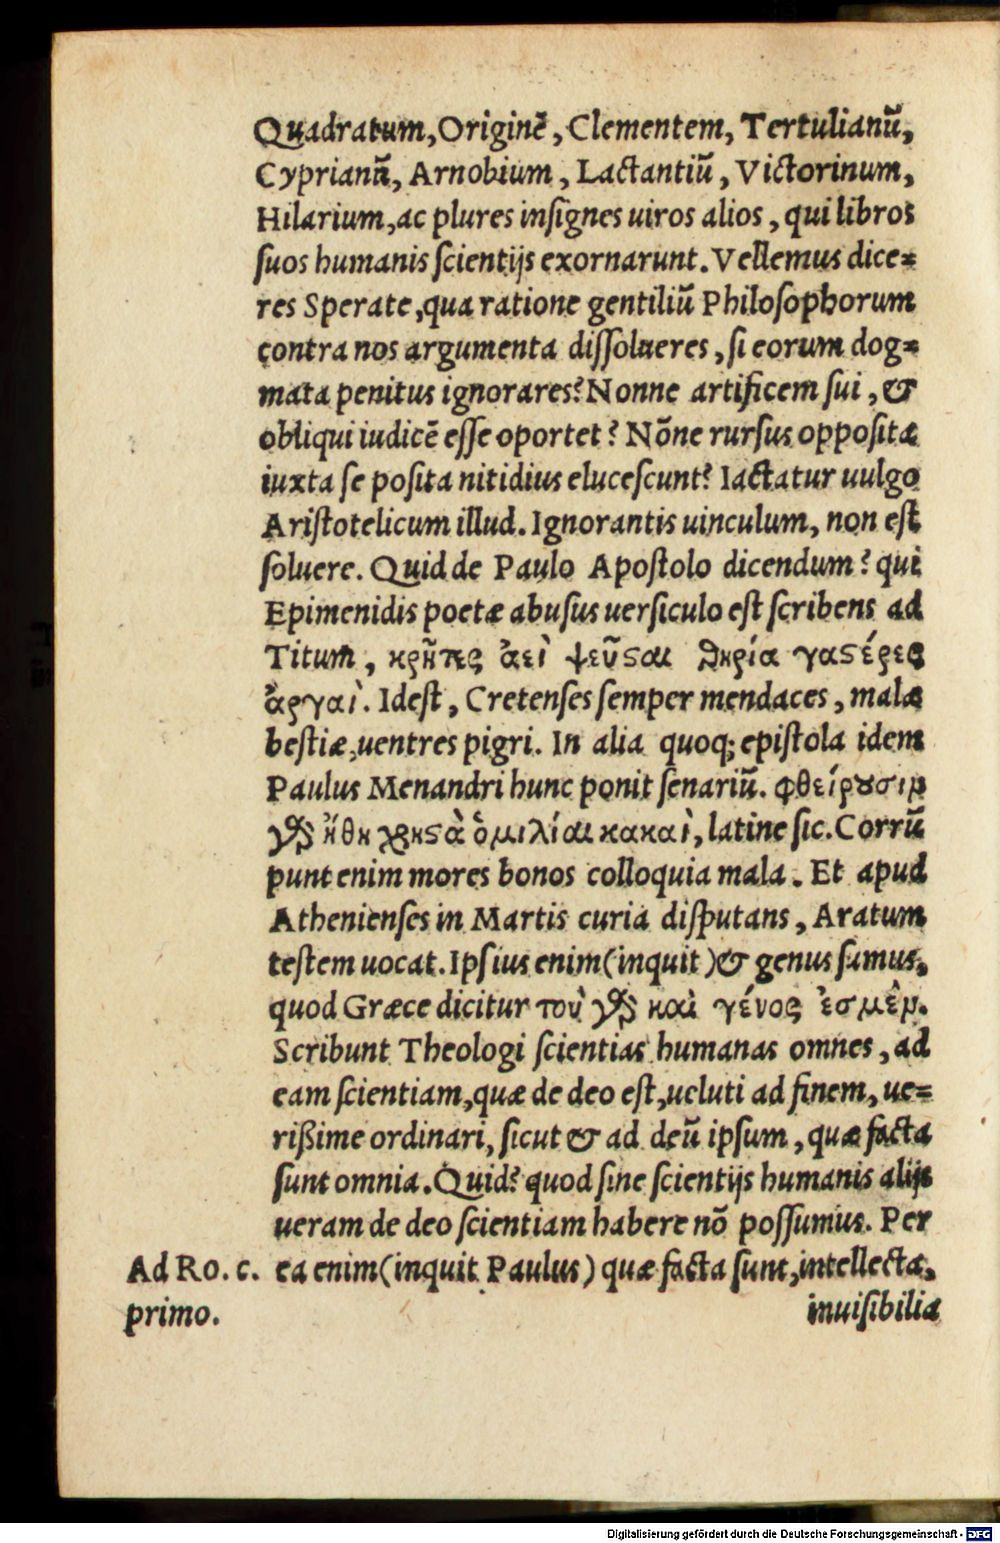 Quadratum, Originẽ, Clementem, Tertulianũ,
Cyprianũ, Arnobium, Lactantiũ, Victorinum,
Hilarium, ac plures inſignes uiros alios, qui libros
ſuos humanis ſcientijs exornarunt. Vellemus dice=
res Sperate, qua ratione gentiliũ Philoſophorum
contra nos argumenta diſſolueres, ſi eorum dog=
mata penitus ignorares? Nonne artificem ſui, &
obliqui iudicẽ eſſe oportet? Nõne rurſus oppoſita
iuxta ſe poſita nitidius eluceſcunt? Iactatur uulgo
Ariſtotelicum illud. Ignorantis uinculum, non eſt
ſoluere. Quid de Paulo Apoſtolo dicendum? qui
Epimenidis poetæ abuſus uerſiculo eſt ſcribens ad
Titum, κρῆτες ἀεὶ ψεῦϛαι θηρία γαϛέρες
ἀργαὶ. Id eſt, Cretenſes ſemper mendaces, malæ
beſtiæ, uentres pigri. In alia quoq; epiſtola idem
Paulus Menandri hunc ponit ſenariũ. φθείρȣσιν
γὰρ ἤθη χρηϛὰ ὁμιλίαι κακαὶ, latine ſic. Corrũ
punt enim mores bonos colloquia mala. Et apud
Athenienſes in Martis curia diſputans, Aratum
teſtem uocat. Ipſius enim (inquit) & genus ſumus,
quod Græce dicitur τοῦ γὰρ καὶ γένος ἐσμὲν.
Scribunt Theologi ſcientias humanas omnes, ad
eam ſcientiam, quæ de deo eſt, ueluti ad finem, ue=
rißime ordinari, ſicut & ad deũ ipſum, quæ facta
ſunt omnia. Quid? quod ſine ſcientijs humanis alijs
ueram de deo ſcientiam habere nõ poſſumus. Per
Ad Ro. c. ea enim (inquit Paulus) quæ facta ſunt, intellecta,
primo. inuiſibilia
Digitalisierung gefördert durch die Deutsche Forschungsgemeinschaft - DFG